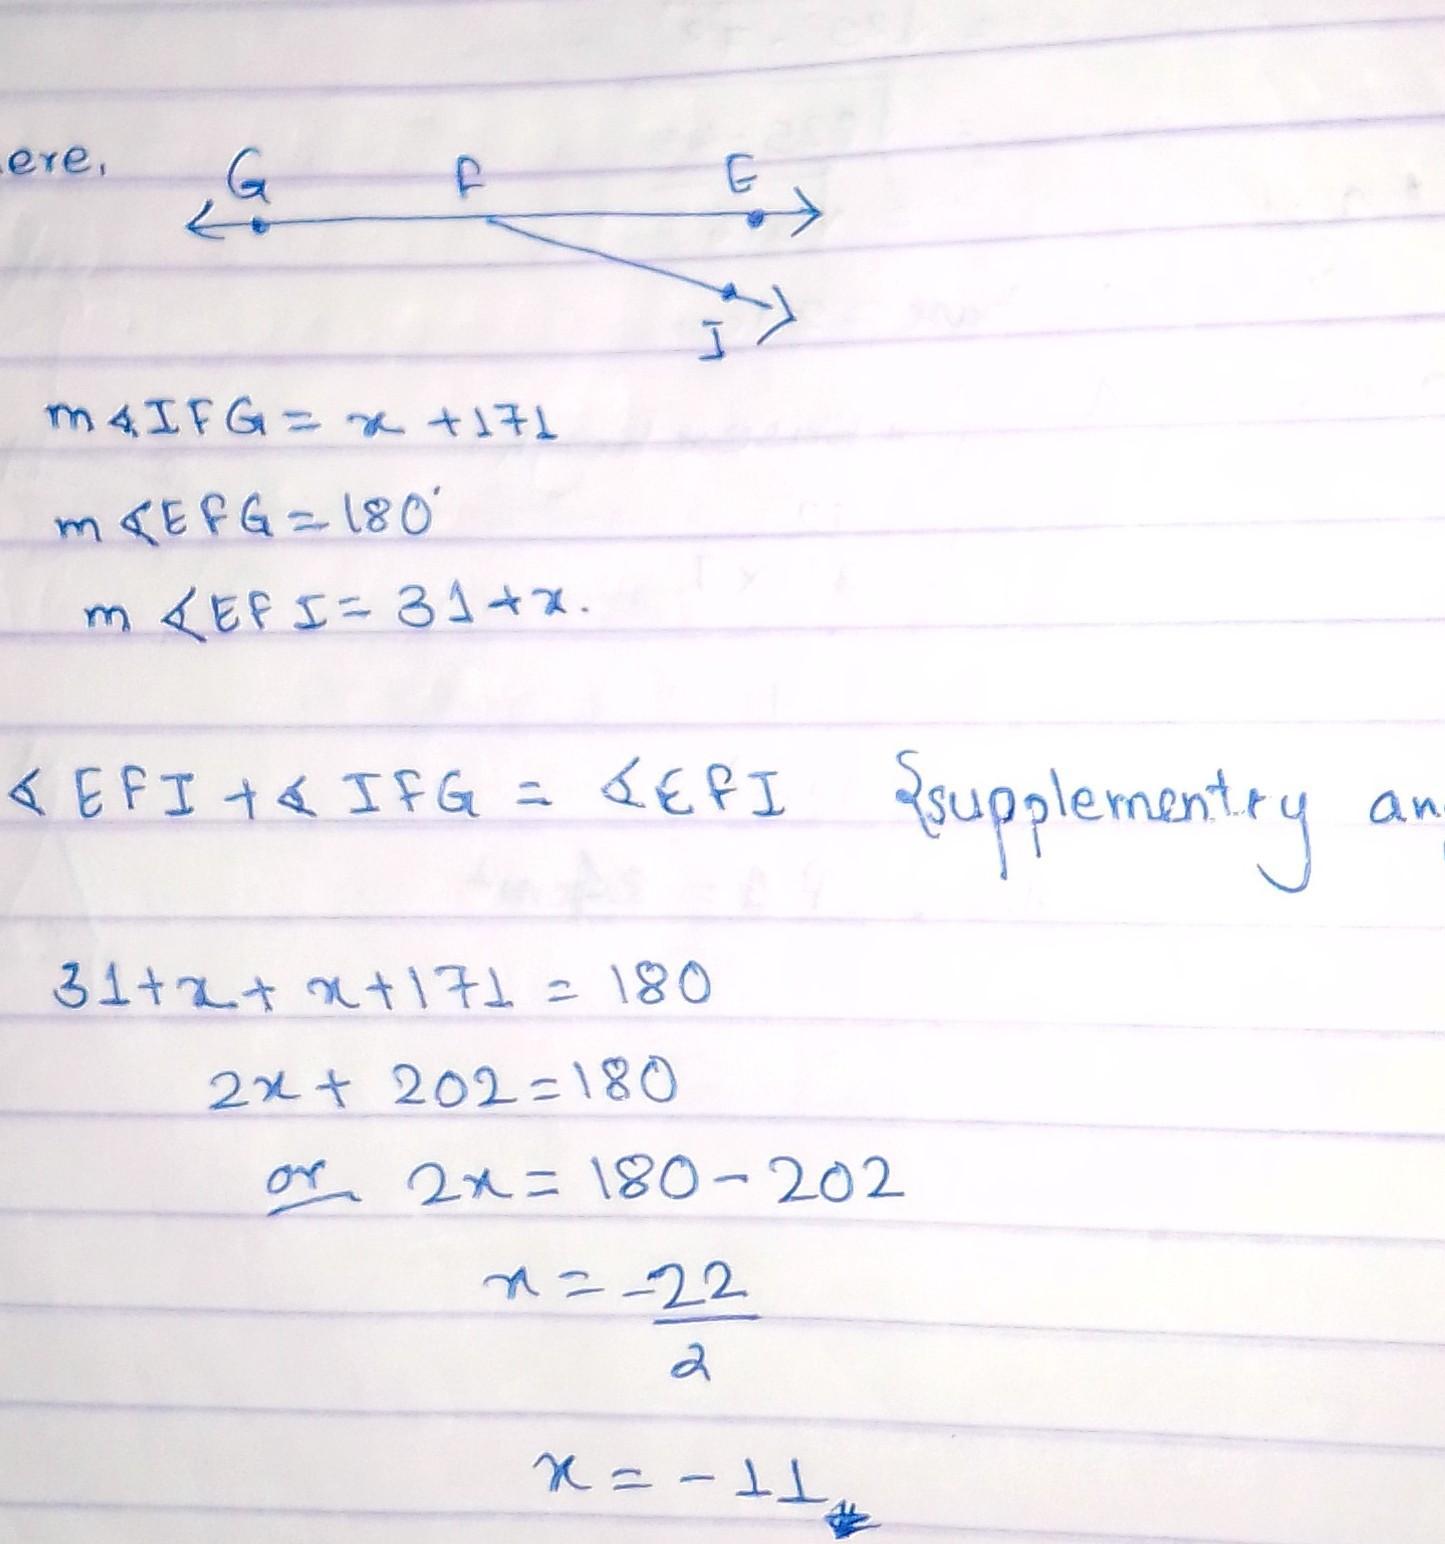 ere,
G F E
I
m∡IFG = x +171
m∡EFG = 180°
m ∡EFI = 31+x.
∡EFI + ∡IFG = ∡EFI {supplementry an
31+x+ x+171 = 180
2x+ 202 = 180
or 2x = 180-202
x = -22
2
x = -11